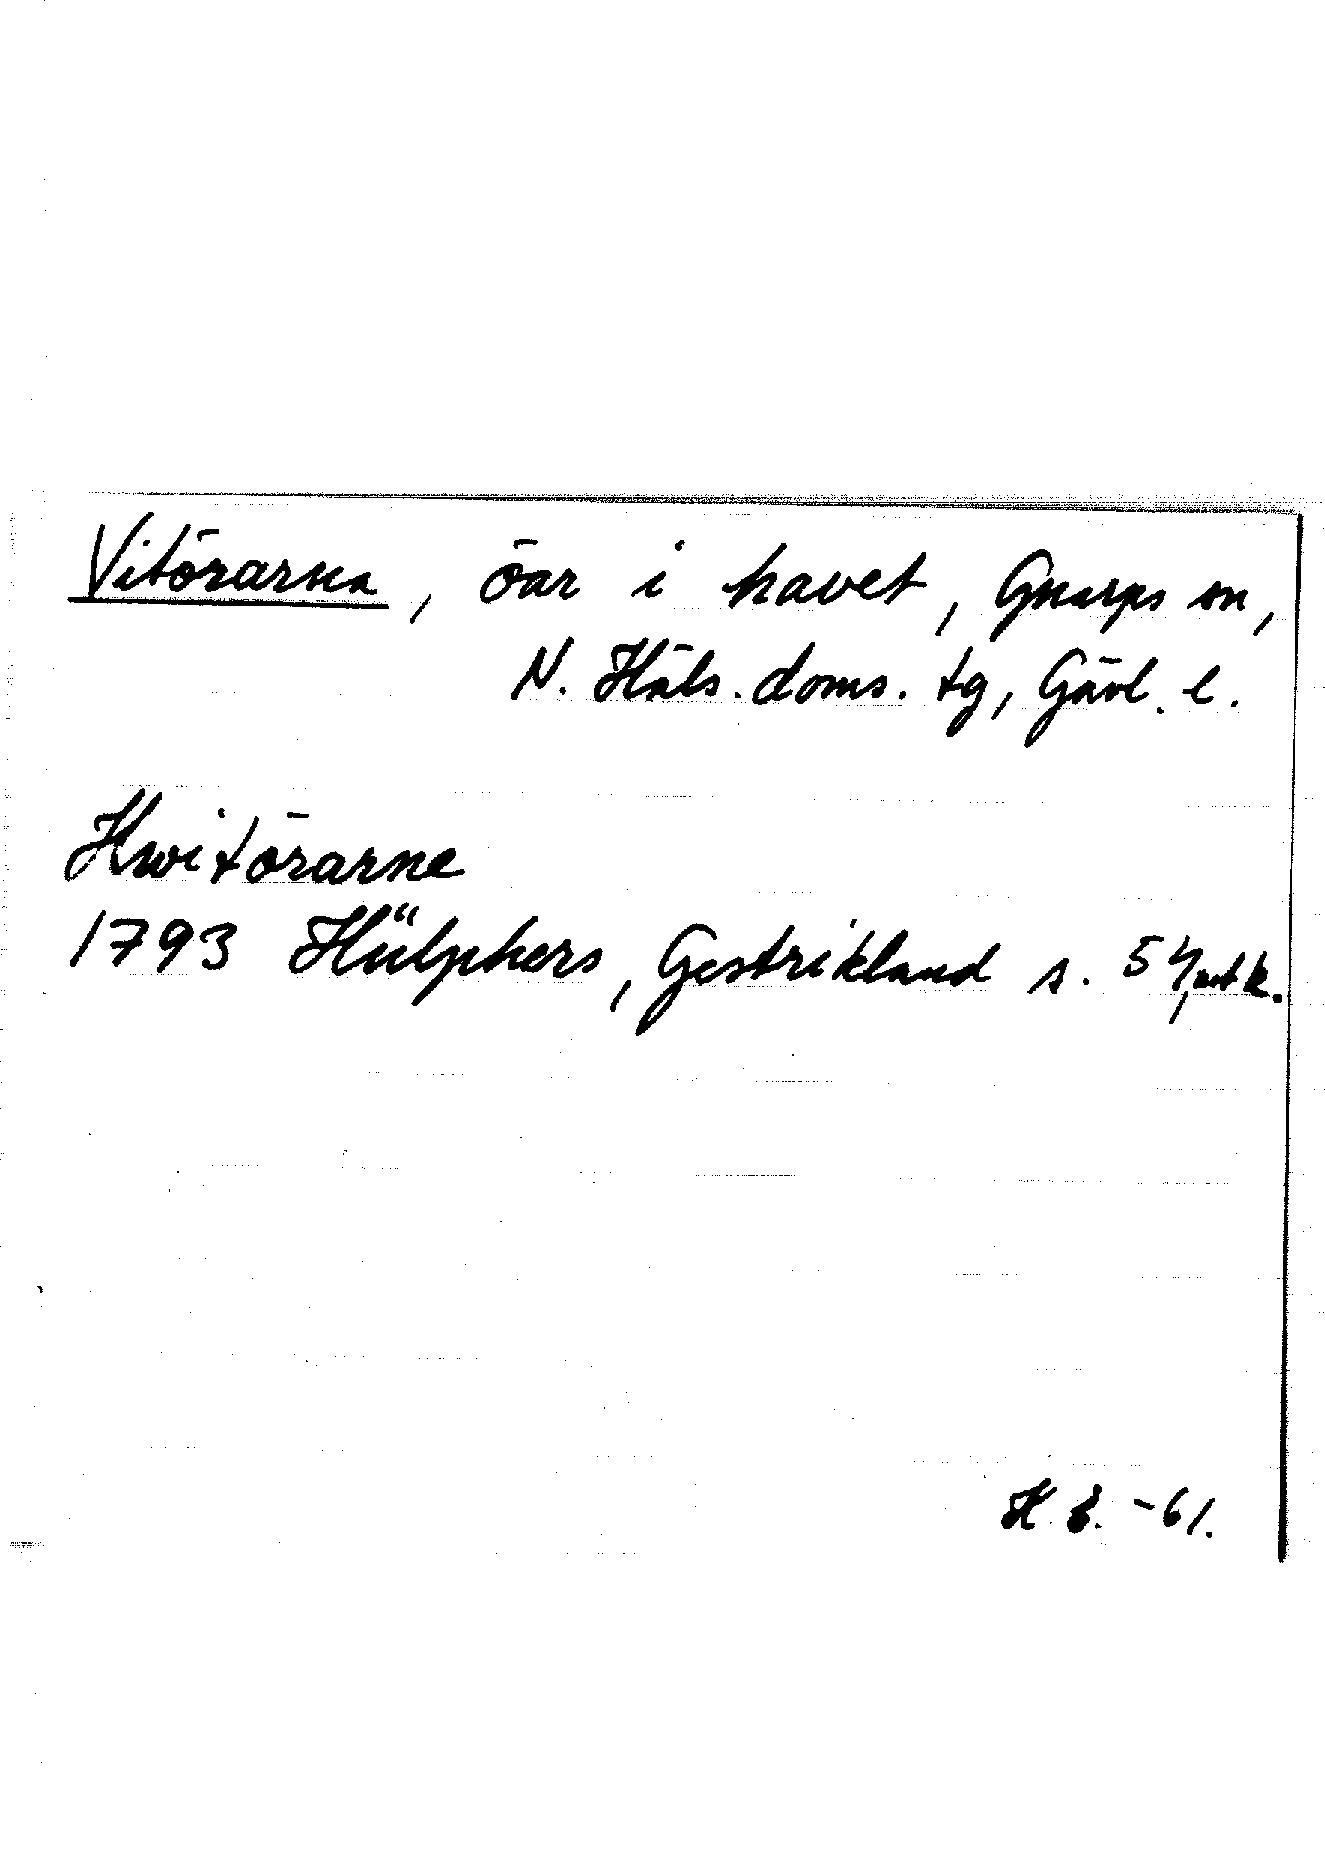 Vitörarna, öar i havet, Gnarps sn,
N. Häls. doms. tg, Gävl. l.
Hwitörarne
1793 Hülphers, Gestrikland s. 54, utk.
H. B. -61.